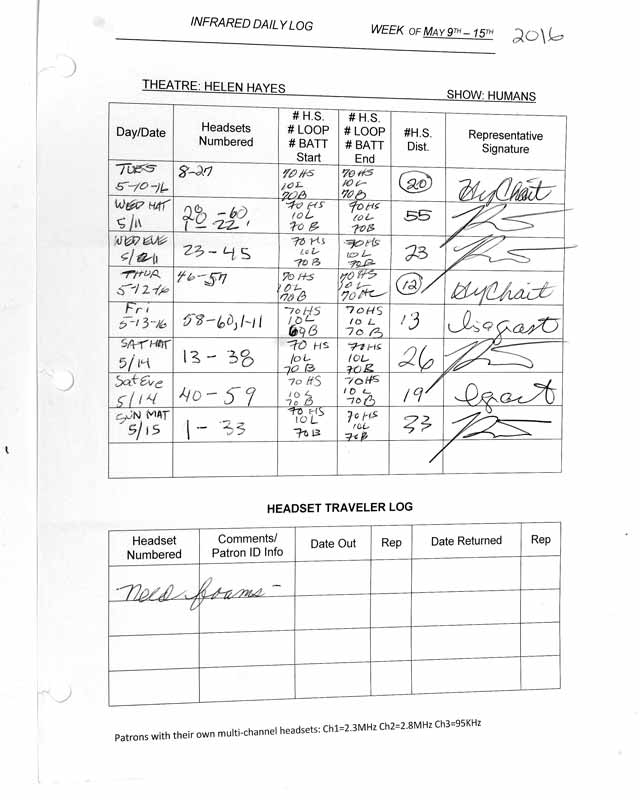 INFRARED DAILY LOG
WEEK OF MAY 9TH – 15TH 2016
THEATRE: HELEN HAYES
SHOW: HUMANS
Day/Date
Headsets Numbered
# H.S. # LOOP # BATT Start
# H.S. # LOOP # BATT End
#H.S. Dist.
Representative Signature
TUES 5-10-16 8-27 70 HS 10L 70B 70HS 10L 70B 20 HyChait
WED MAT 5/11 28-60, 1-22, 70 HS 10L 70B 70HS 10L 70B 55
WED EVE 5/11 23-45 70 HS 10L 70B 70HS 10L 70B 23
THUR 5-12-16 46-57 70 HS 10L 70B 70HS 10L 12 HyChait
Fri 5-13-16 58-60,1-11 70HS 10L 69B 70HS 10L 70B 13
SAT MAT 5/14 13-38 70 HS 10L 70B 70HS 10L 70B 26
Sat Eve 5/14 40-59 70 HS 10L 70B 70HS 10L 70B 19
SUN MAT 5/15 1-33 70 HS 10L 70B 70HS 10L 70B 33
HEADSET TRAVELER LOG
Headset Numbered
Comments/ Patron ID Info
Date Out
Rep
Date Returned
Rep
Need foams –
Patrons with their own multi-channel headsets: Ch1=2.3MHz Ch2=2.8MHz Ch3=95KHz